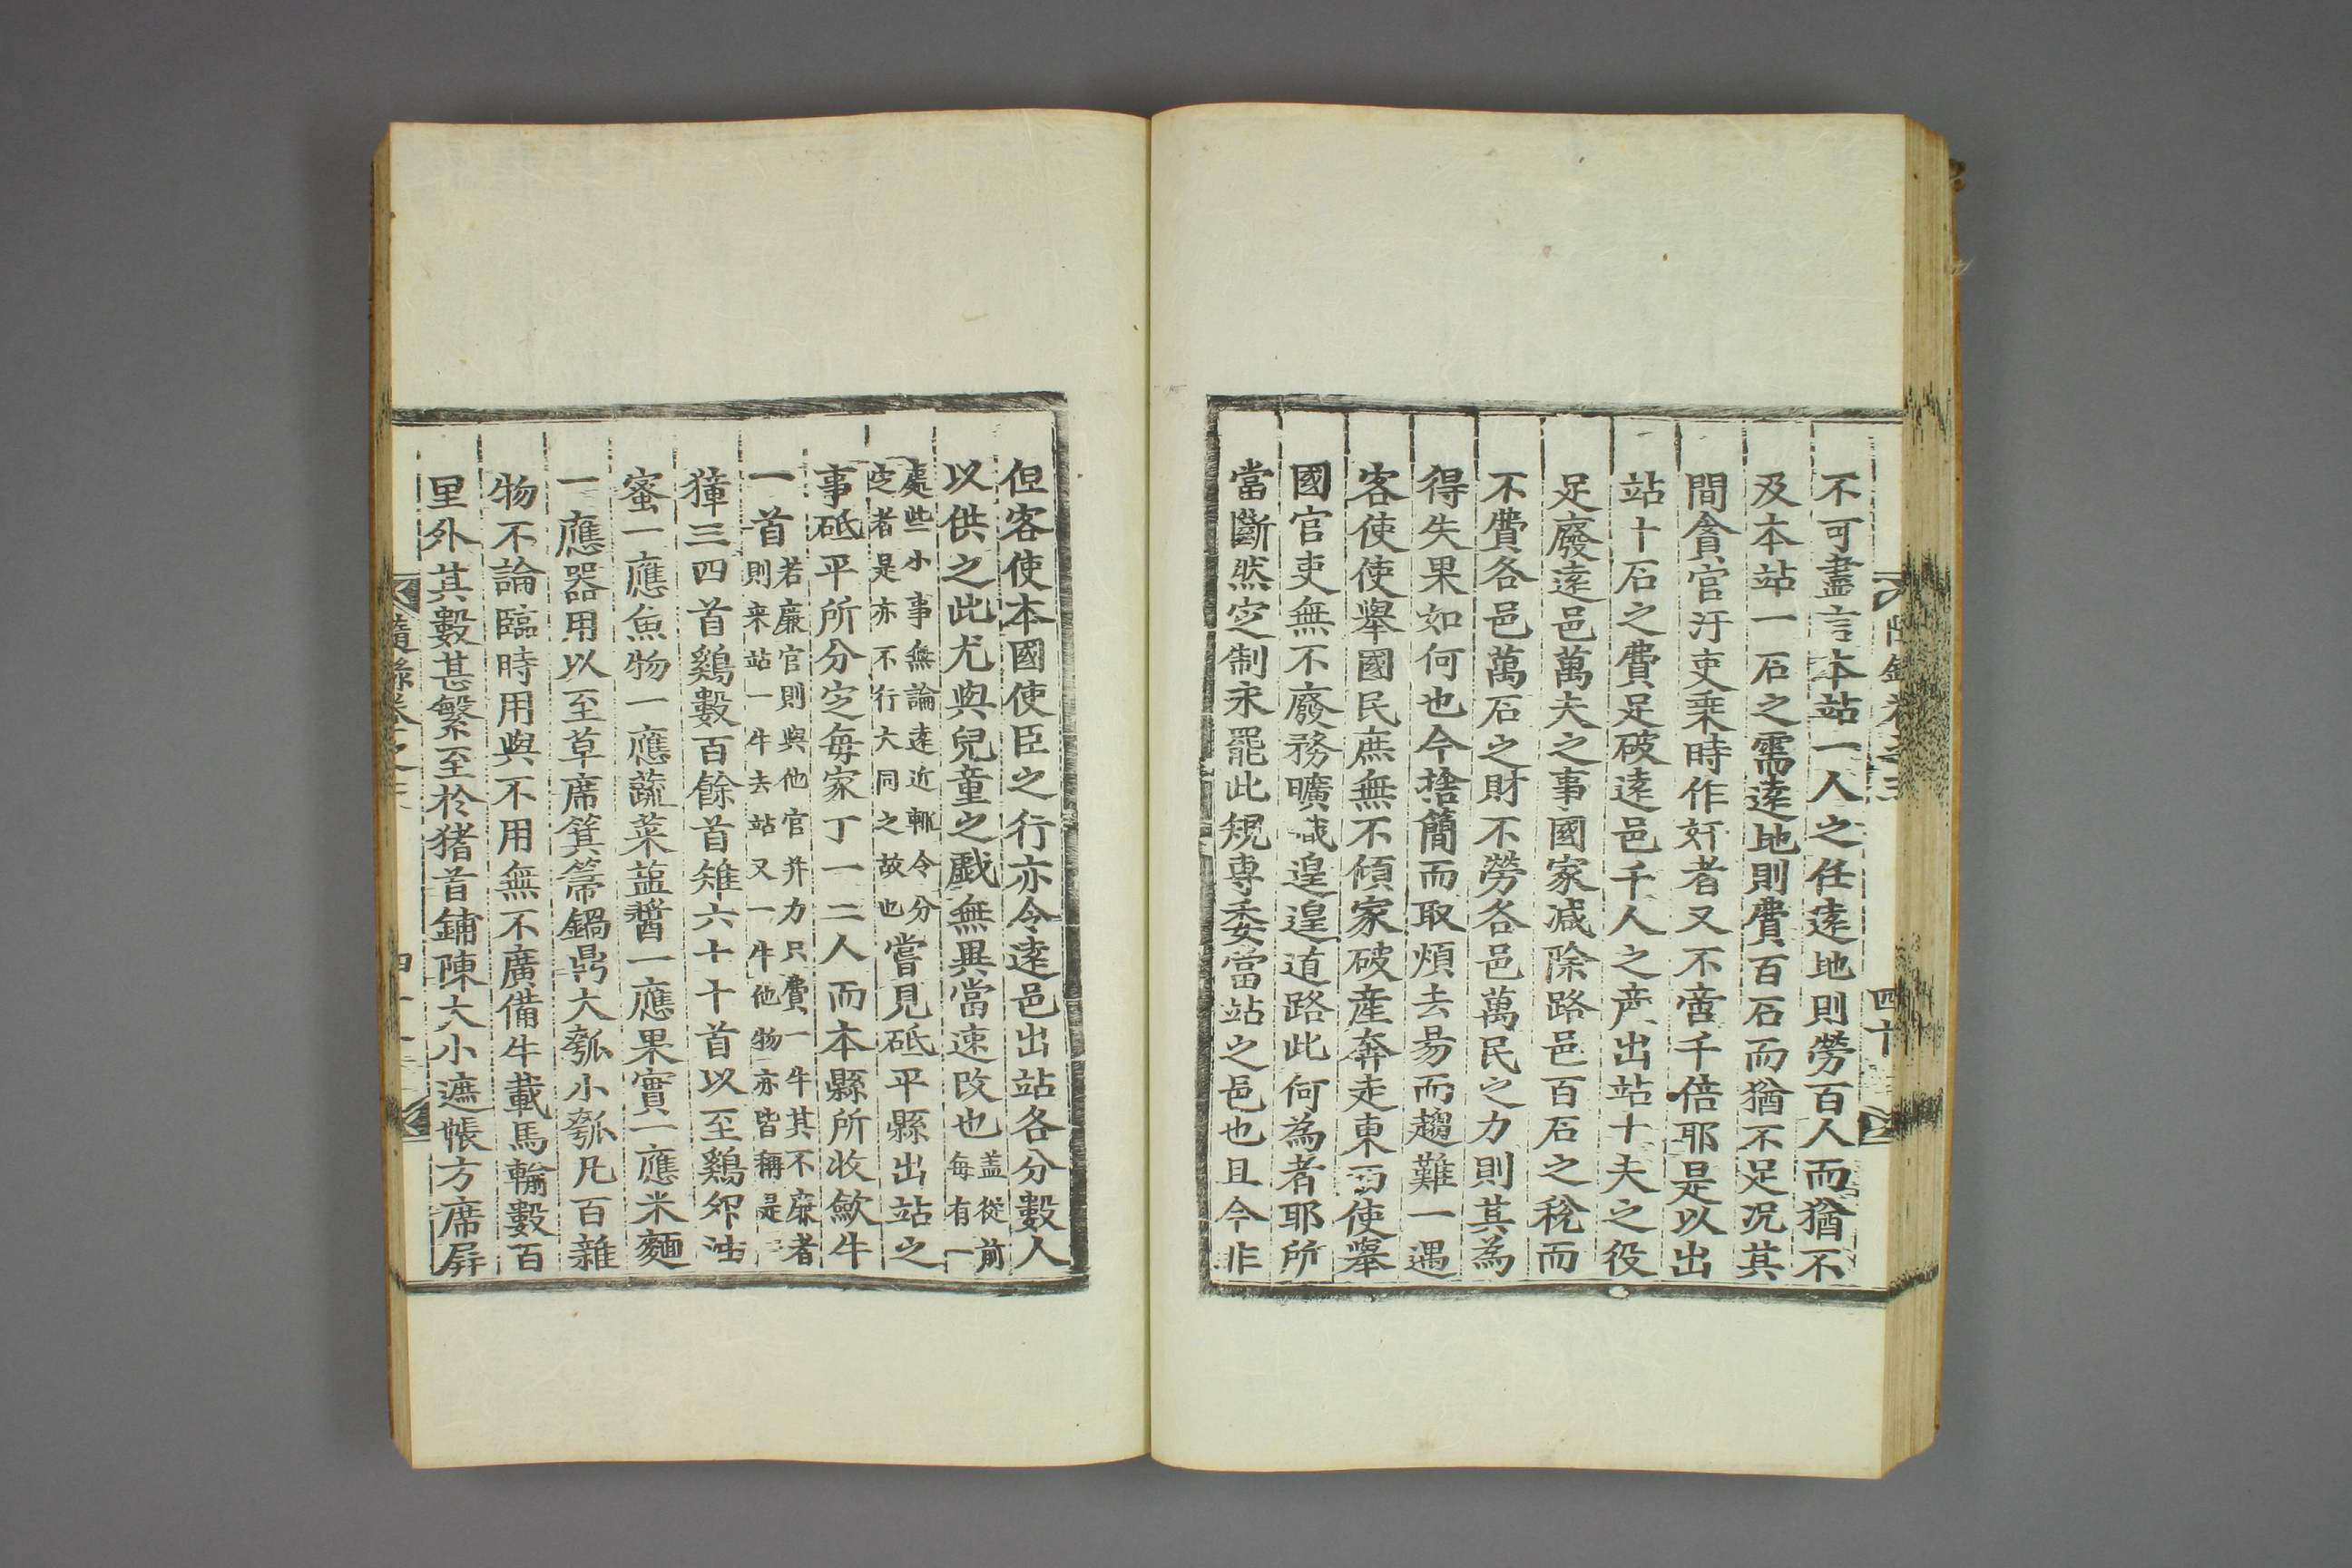 不可盡言本站一人之任遠地則勞百人而猶不
及本站一石之需遠地則費百石而猶不足况其
間貪官汙吏乗時作奸者又不啻千倍耶是以出
站十石之費足破遠邑千人之産出站十夫之役
足廢遠邑萬夫之事國家减除路邑百石之稅而
不費各邑萬石之財不勞各邑萬民之力則其為
得失果如何也今捨簡而取煩去易而趨難一遇
客使使擧國民庶無不傾家破産奔走東西使擧
國官吏無不廢務曠職遑遑道路此何為者耶所
當斷然定制永罷此規專委當站之邑也且今非
四十
但客使本國使臣之行亦令遠邑出站各分數人
以供之此尤與兒童之戱無異當速改也盖從前每有一
處些小事無論遠近輒令分定者是亦不行大同之故也嘗見砥平縣出站之
事砥平所分定每家丁一二人而本縣所收歛牛
一首若廉官則與他官并力只費一牛其不廉者則来站一牛去站又一牛他物亦皆稱是
獐三四首鷄數百餘首雉六七十首以至鷄卵油
蜜一應魚物一應蔬菜葅醬一應果實一應米麵
一應器用以至草席箕箒鍋鼎大瓠小瓠凡百雜
物不論臨時用與不用無不廣備牛載馬輸數百
里外其數甚繁至於猪首鋪陳大小遮帳方席屛
隨錄卷之三